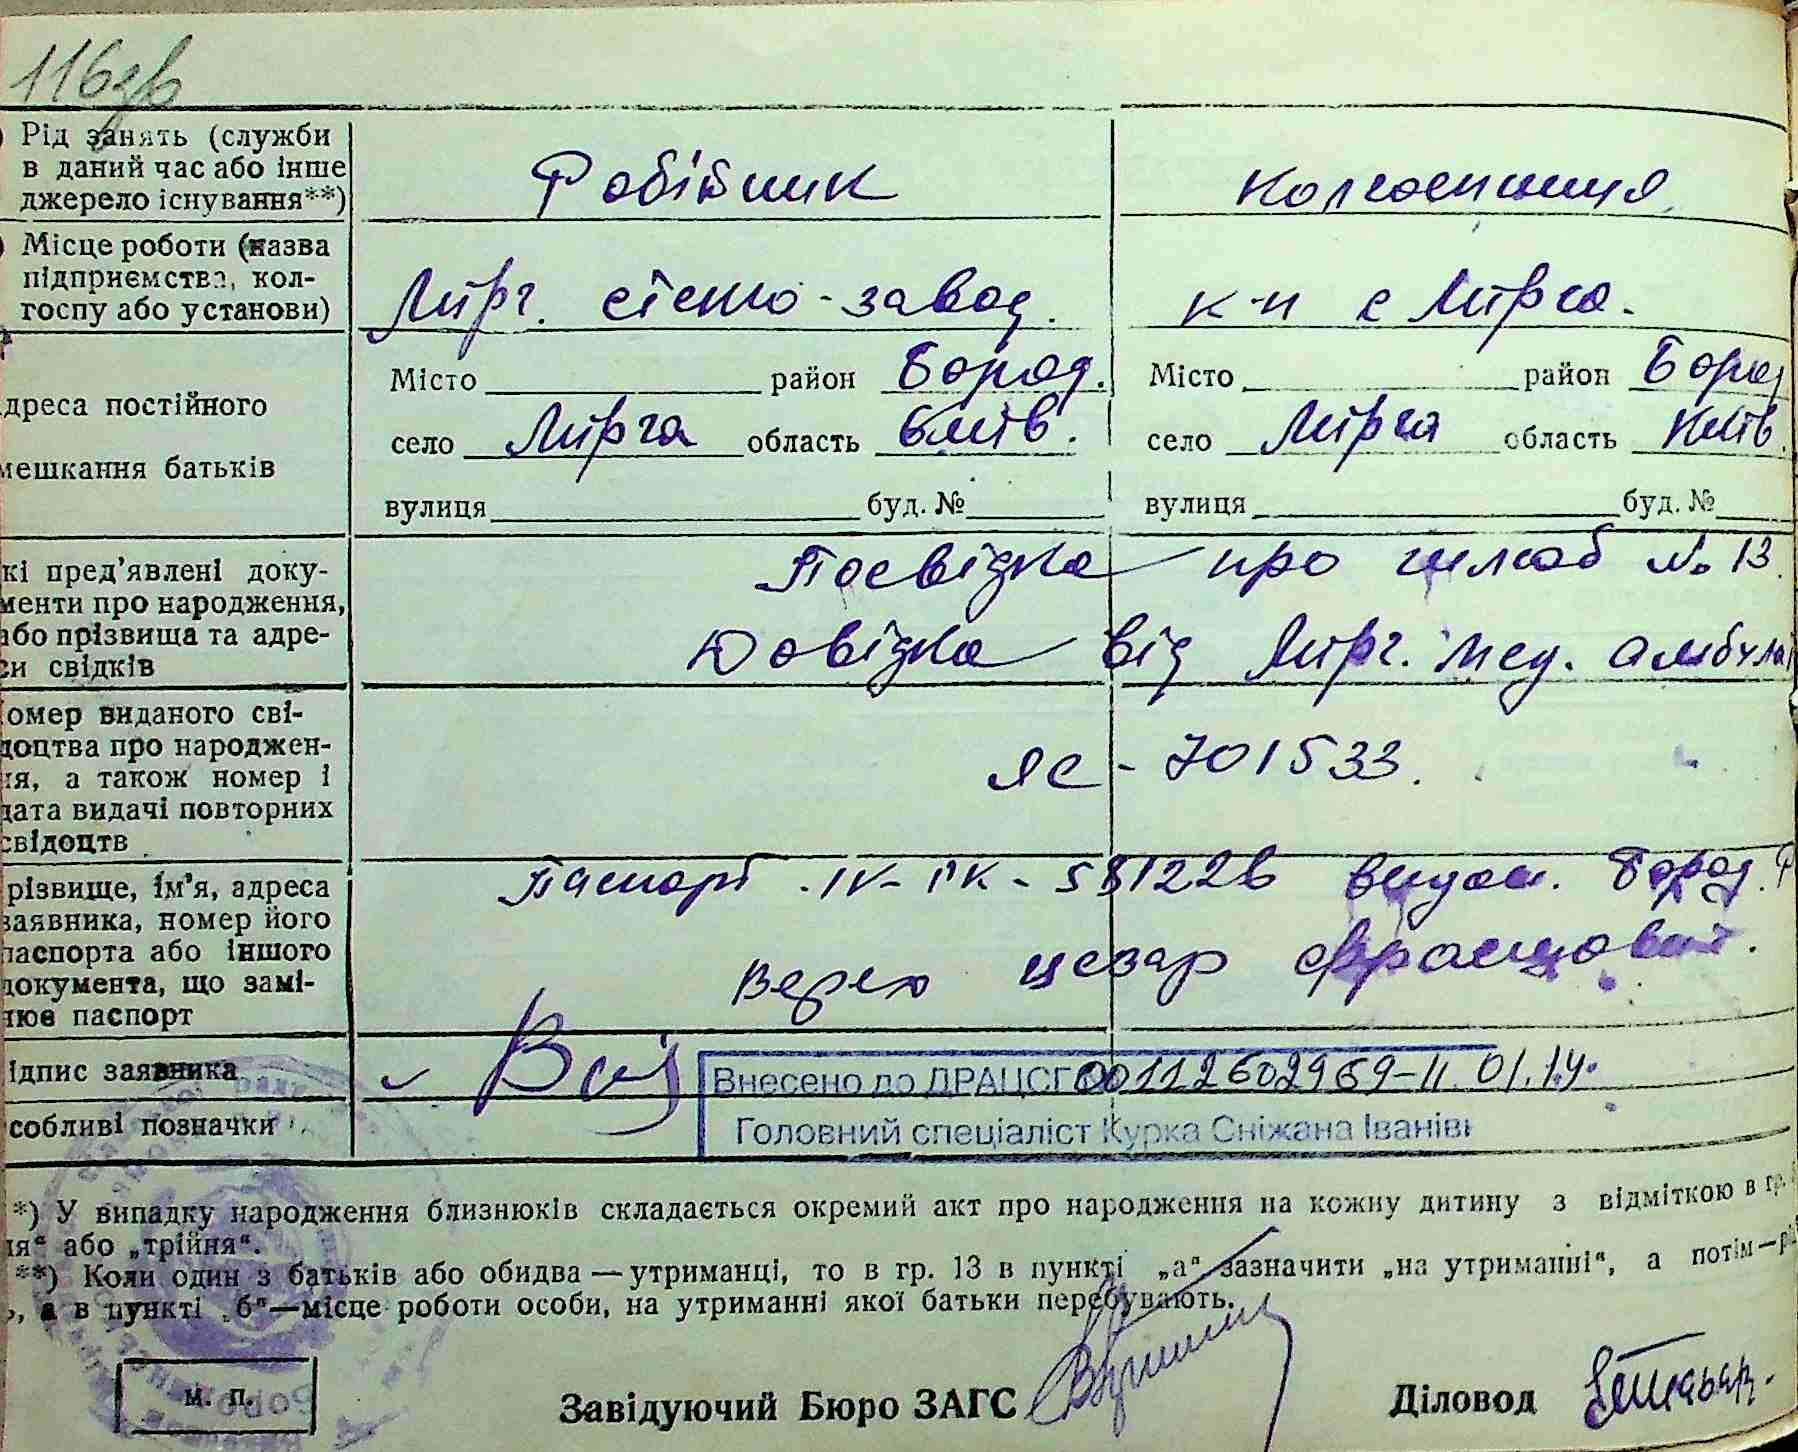 116зв
Рід занять (служби
в даний час або інше
джерело існування**)
Робітник
колгоспниця
Місце роботи (назва
підприємства, кол-
госпу або установи)
Пирг. завод.
к-п с Пирго.
дреса постійного
мешкання батьків
Місто район Бород.
село область Київ.
вулиця буд. №
Місто район Бород
село область Київ.
вулиця буд. №
кі пред’явлені доку-
менти про народження,
або прізвища та адре-
си свідків
Посвідка про шлюб № 13.
Довідка від Мед. амбула
омер виданого сві-
доцтва про народжен-
ня, а також номер і
дата видачі повторних
свідоцтв
ЯС - 701533.
різвище, ім’я, адреса
заявника, номер його
паспорта або іншого
документа, що замі-
нює паспорт
Паспорт Бород.
Цезар
ідпис заявника
Внесено до ДРАЦСГ 00112602969-11.01.14.
собливі позначки
Головний спеціаліст Курка Сніжана Іванів
*) У випадку народження близнюків складається окремий акт про народження на кожну дитину з відміткою в гр.
ня“ або „трійня“.
**) Коли один з батьків або обидва — утриманці, то в гр. 13 в пункті „а“ зазначити „на утриманні“, а потім —
, а в пункті „б“—місце роботи особи, на утриманні якої батьки перебувають.
М. П.
Завідуючий Бюро ЗАГС
Діловод